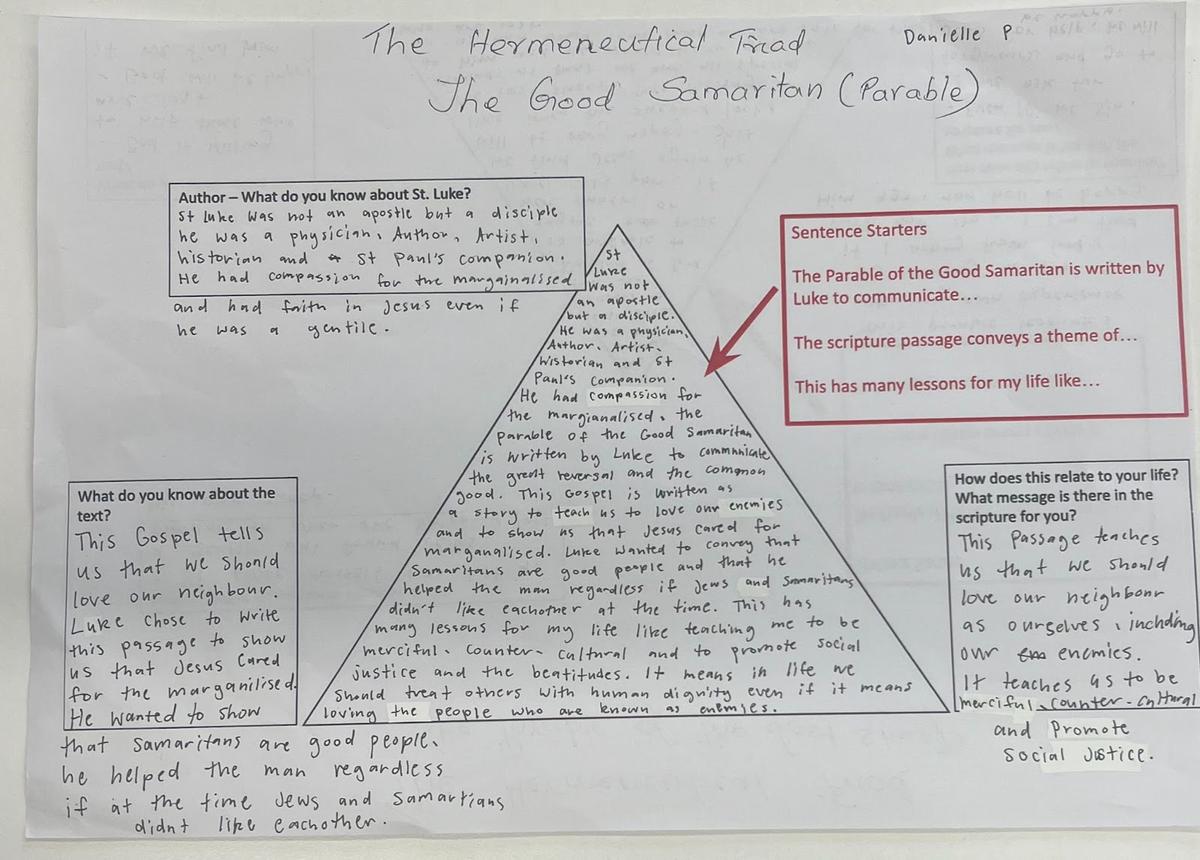 The Hermeneutical Triad
Danielle P.
The Good Samaritan (Parable)
Author – What do you know about St. Luke?
St Luke was not an apostle but a disciple
he was a physician, Author, Artist,
historian and St Paul's companion.
He had compassion for the margainalised
and had faith in Jesus even if
he was a gentile.
Sentence Starters
The Parable of the Good Samaritan is written by
Luke to communicate…
The scripture passage conveys a theme of…
This has many lessons for my life like…
St
Luke
was not
an apostle
but a disciple.
He was a physician,
Author, Artist,
historian and St
Paul's companion.
He had compassion for
the margianalised, the
parable of the Good Samaritan
is written by Luke to communicate
the great reversal and the common
good. This Gospel is written as
a story to teach us to love our enemies
and to show us that Jesus cared for
marganalised. Luke wanted to convey that
Samaritans are good people and that he
helped the man regardless if Jews and Samaritans
didn't like eachother at the time. This has
many lessons for my life like teaching me to be
merciful, counter-cultural and to promote social
justice and the beatitudes. It means in life we
should treat others with human dignity even if it means
loving the people who are known as enemies.
What do you know about the
text?
This Gospel tells
us that we should
love our neighbour.
Luke chose to write
this passage to show
us that Jesus cared
for the marganilised.
He wanted to show
that Samaritans are good people,
he helped the man regardless
if at the time Jews and Samartians
didnt like eachother.
How does this relate to your life?
What message is there in the
scripture for you?
This Passage teaches
us that we should
love our neighbour
as ourselves, including
our enemies.
It teaches us to be
merciful, counter-cultural
and Promote
Social Justice.